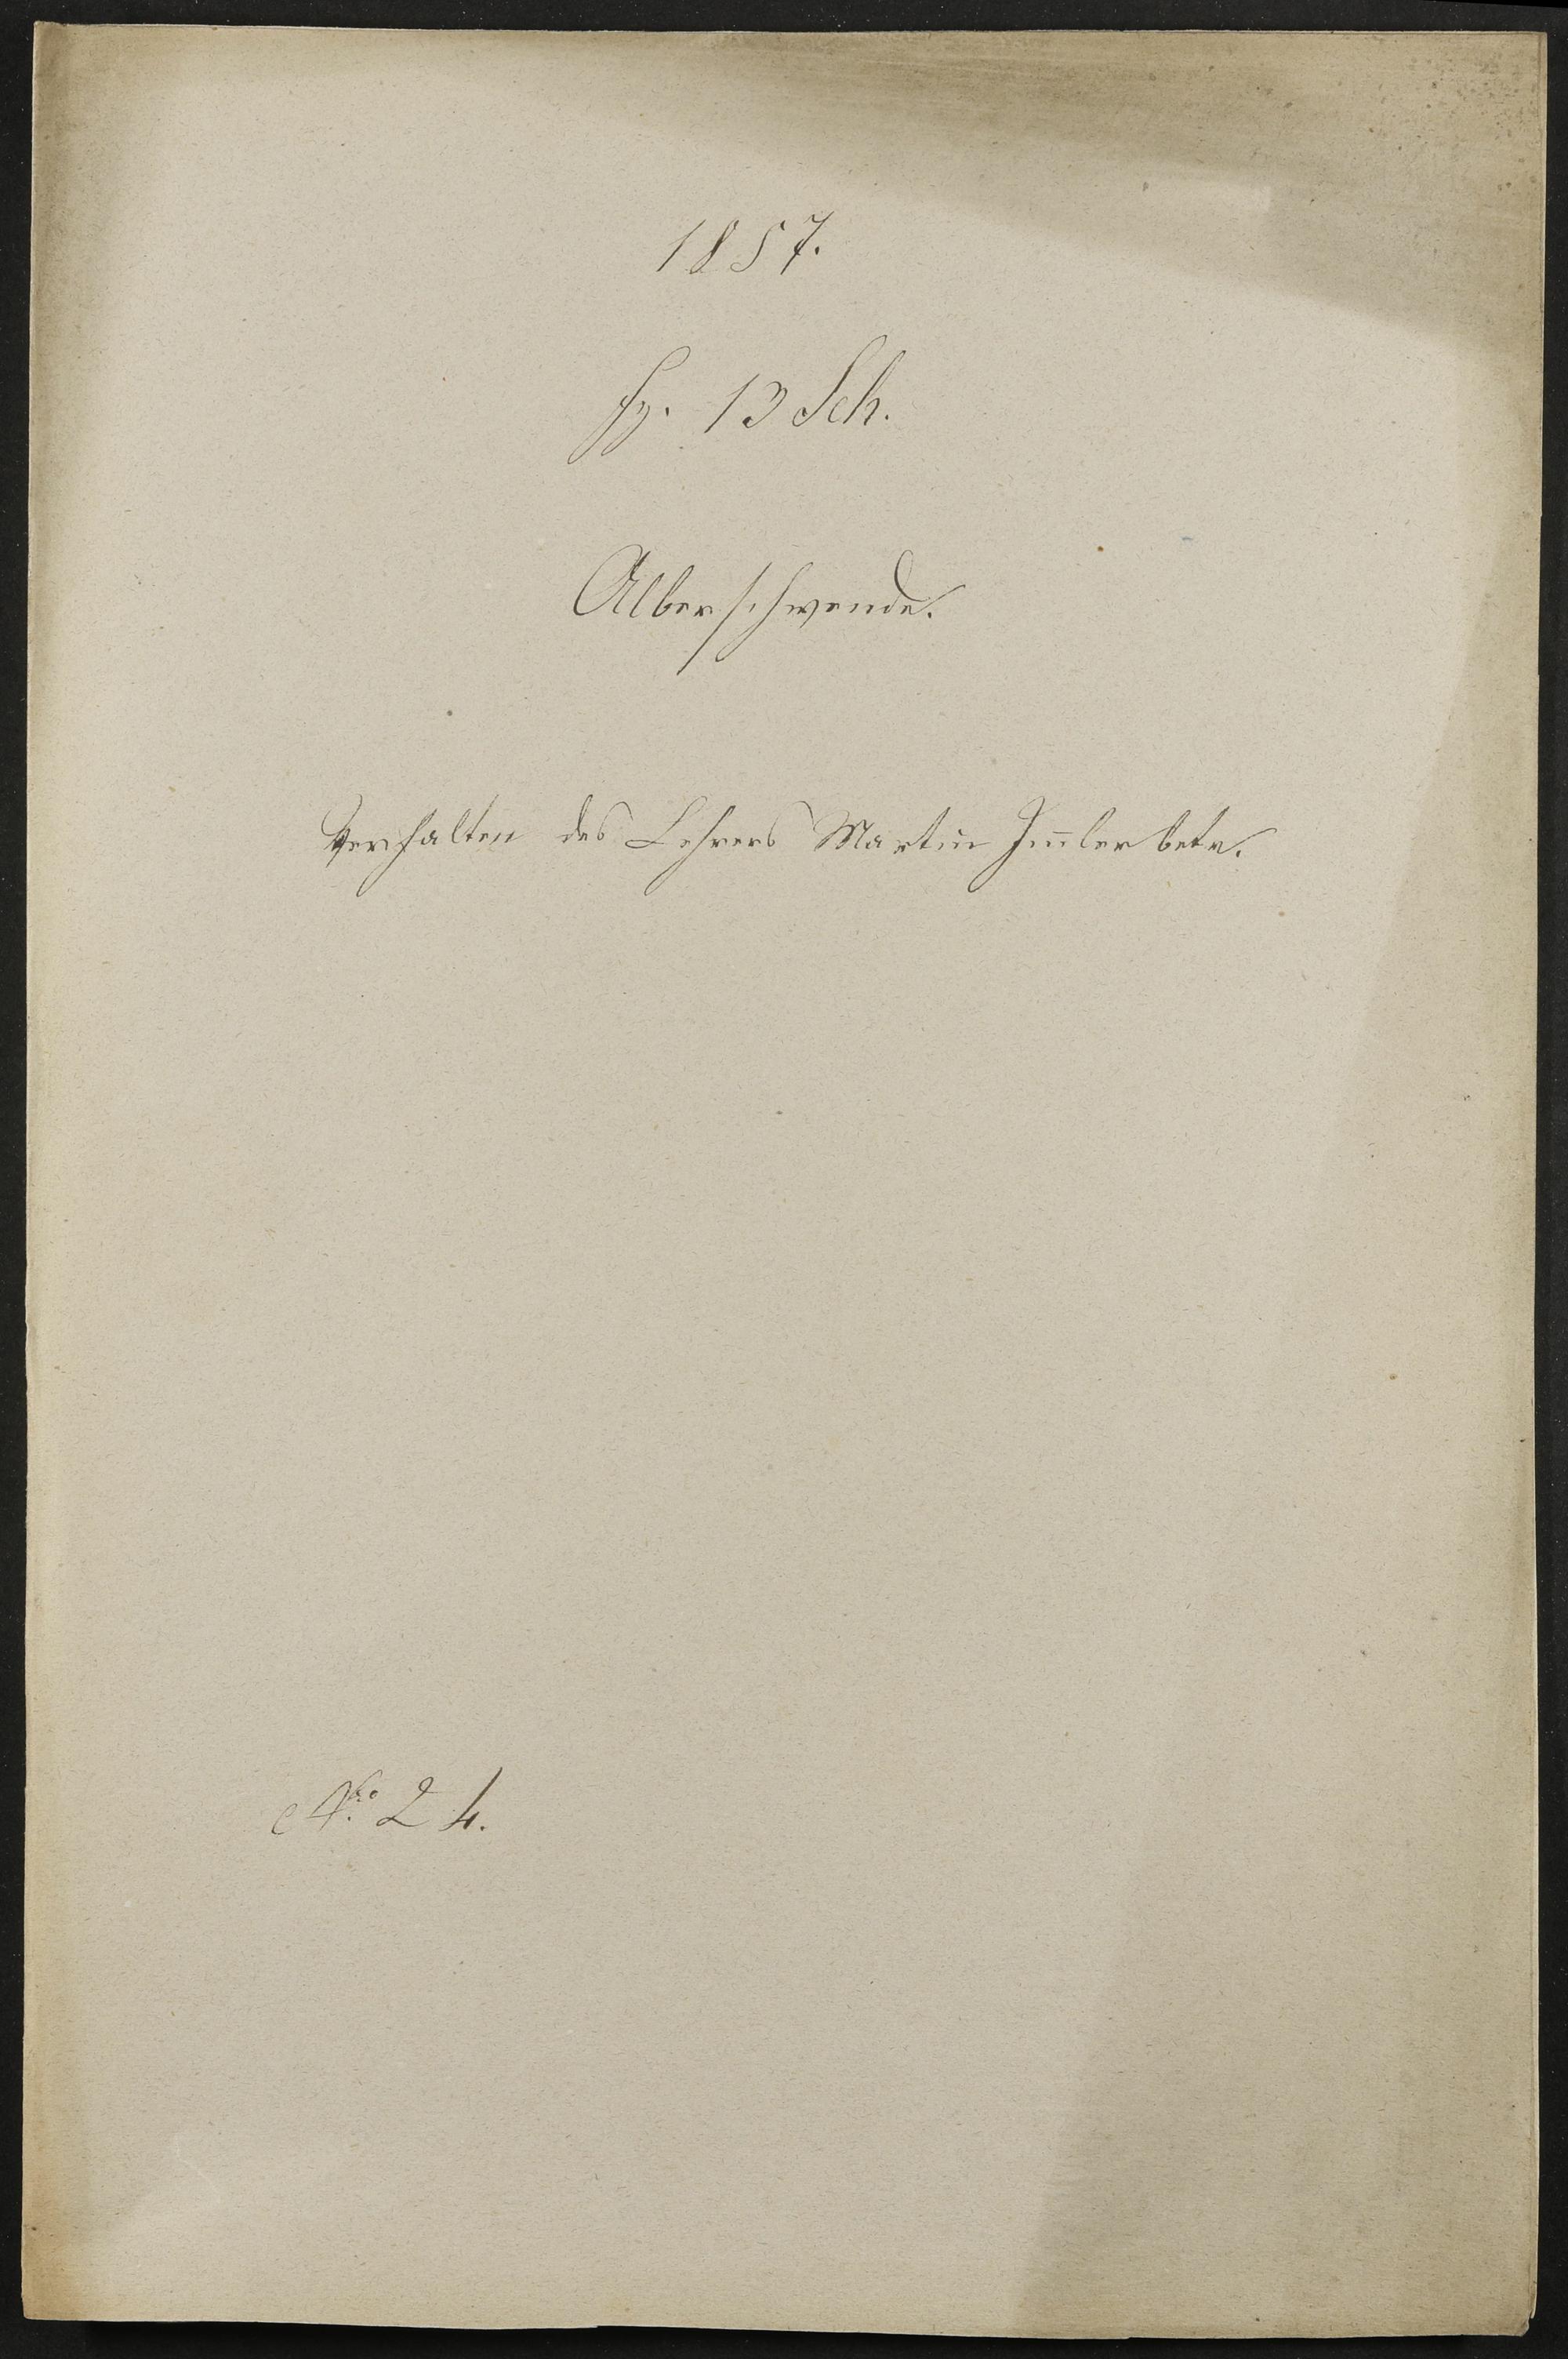 1857.
Fz. 13 Sch.
Alberschwende.
Verhalten des Lehrers Martin Im̅ler betr.
No. 24.